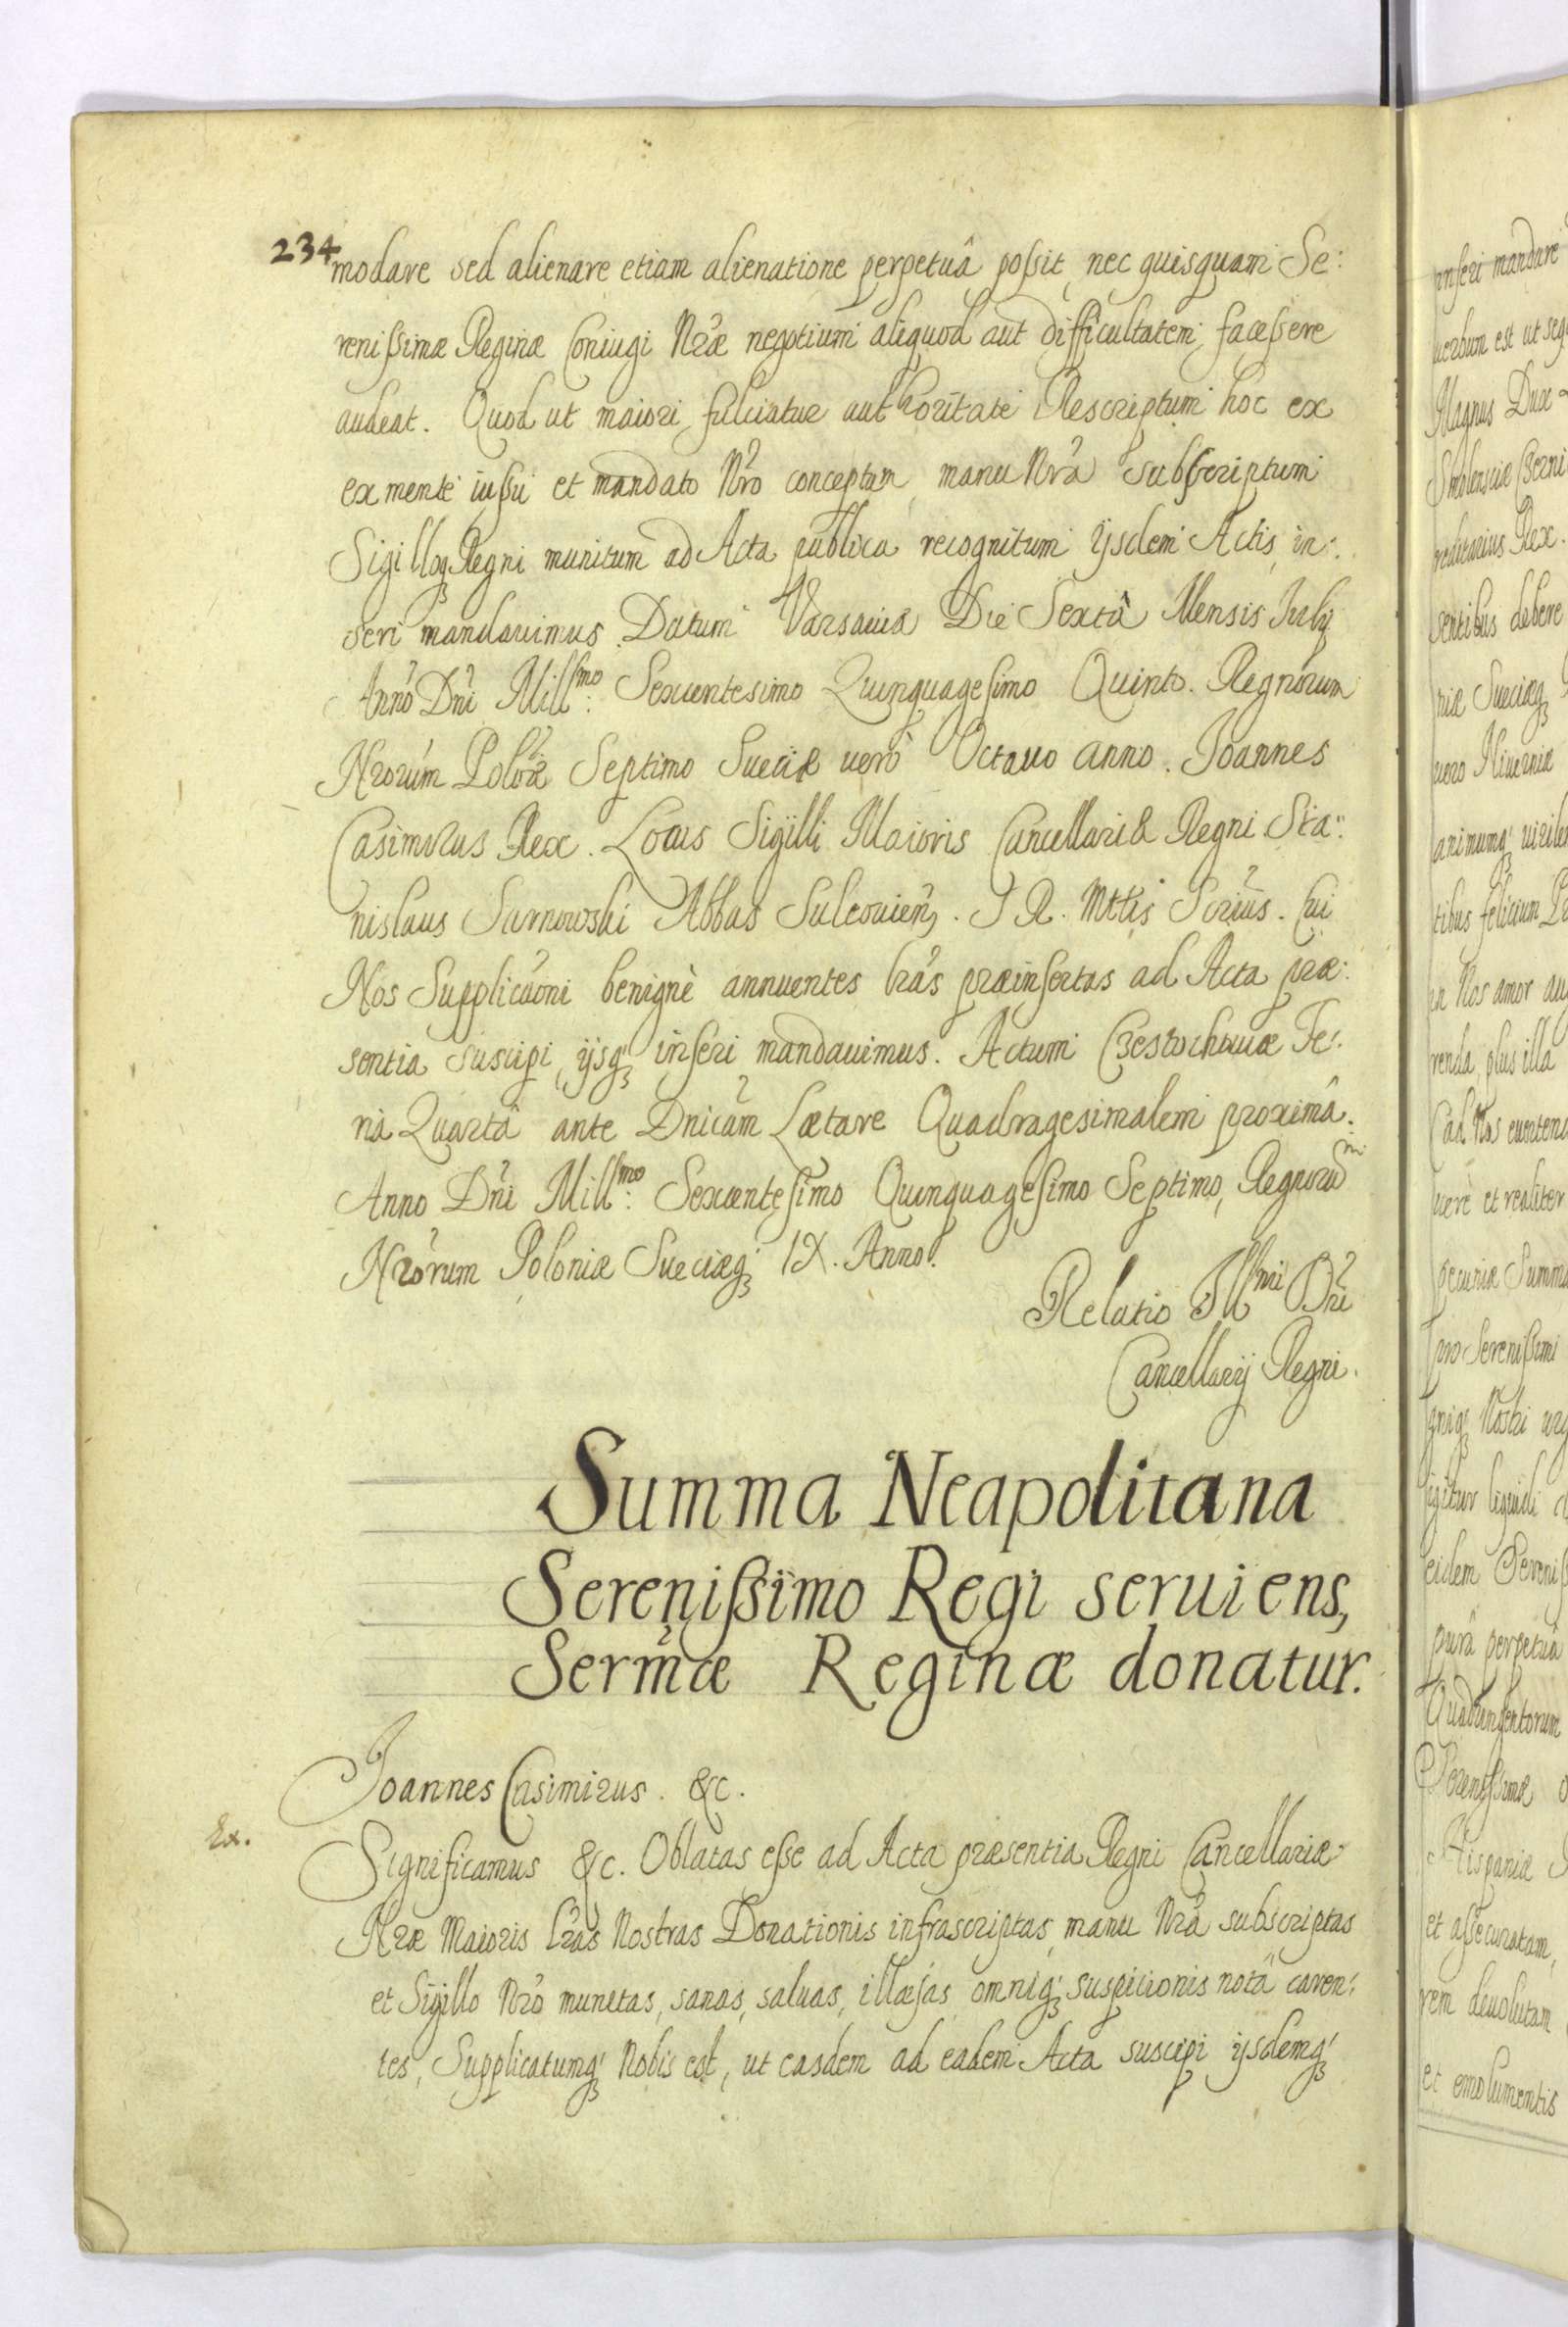 234
modare sed alienare etiam alienatione perpetuâ poſsit, nec quisquam Se:
reniſsimæ Reginæ Coniugi Nræ negotium aliquod aut difficultatem faceſsere
audeat. Quod ut maiori fulciatur authoritate Rescriptum hoc ex
ex mente iuſsu et mandato Nro conceptum manu Nrâ Subſcriptum
Sigilloq Regni munitum ad Acta publica recognitum ijsdem Actis in:
seri mandauimus. Datum Varsauiæ Die Sextâ Mensis July
Anno Dni Mill\u200bſmo: Sexcentesimo Quinquageſimo Quinto. Regnorum
Nrorum Poloniæ Septimo Sueciæ uerò Octauo anno. Joannes
Casimirus Rex. Locus Sigilli Maioris Cancellariæ Regni Sta:
nislaus Sarnowski Abbas Suleouien. S R. Mttis Scrius. Cui
Nos Supplicaoni benignè annuentes lras præinſertas ad Acta præ:
sentia suscipi, ijsq inſeri mandauimus. Actum Czestochouiæ Fe:
riâ Quartâ ante Dnicam Lætare Quadragesimalem proximâ.
Anno Dni Millſmo: Sexcenteſimo Quinquageſimo Septimo, Regnorum
Nrorum Poloniæ Sueciæq IX. Anno.
Relatio Illmi Dni
Cancellarij Regni.
Summa Neapolitana
Sereniſsimo Regi seruiens,
Sermæ Reginæ donatur.
Joannes Casimirus. &c.
Ex.
Significamus &c. Oblatas eſse ad Acta præsentia Regni Cancellariæ
Nræ Maioris lras Nostras Donationis infrascriptas, manu Nrâ subscriptas
et Sigillo Nro munitas, sanas, saluas, illæſas omniq suspicionis notâ caren:
tes, Supplicatumq Nobis est, ut easdem ad eadem Acta suscipi ijsdemq
inſeri mandare
uerbum est ut seq
Magnus Dux
Smolensciæ Czerni
reditarius Rex.
sentibus debere
niæ Sueciæq
uero Niuerniæ
animumq uirile
tibus felicium
in Nos amor au
renda, plus illa
ad Nos
uerè et realiter
pecuniæ Summ
pro Sereniſsimi
Nostri
igitur liquidi
eidem Sereniſ
purâ perpetuâ
Quadringentorum
Sereniſsimæ
Hispaniæ
et aſsecuratam,
rem deuolutam
et emolumentis